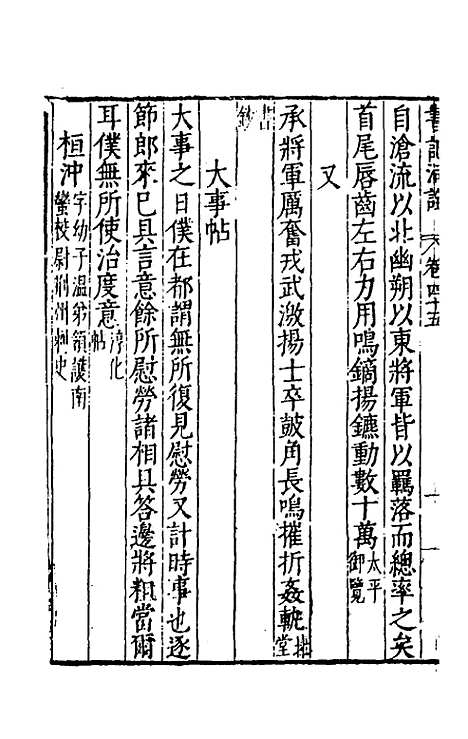 書記洞詮 卷四十五
自滄流以北幽朔以東將軍皆以羈落而總率之矣
首尾唇齒左右力用鳴鏑揚鑣動數十萬太平御覽
又
承將軍厲奮戎武激揚士卒鼓角長鳴摧折姦軌北堂
書鈔
大事帖
大事之日僕在都謂無所復見慰勞又計時事也逐
節郎來已具言意餘所慰勞諸相具答邊將粗當爾
耳僕無所使治度意淳化帖
桓沖字幼子溫弟領護南蠻校尉荊州刺史